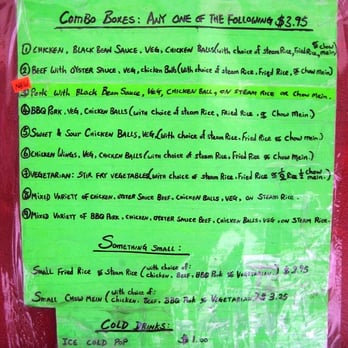 COMBO BOXES: ANY ONE OF THE FOLLOWING $3.95
① CHICKEN, BLACK BEAN SAUCE, VEG, CHICKEN BALLS (with choice of steam Rice, Fried Rice, or chow mein)
② BEEF WITH OYSTER SAUCE, VEG, chicken Balls (with choice of steam Rice, Fried Rice, or chow mein)
NEW
③ Pork with Black Bean Sauce, VEG, CHICKEN BALL, ON STEAM RICE OR CHOW MEIN.
④ BBQ PORK, VEG, CHICKEN BALLS (with choice of steam, Fried Rice, or Chow mein)
⑤ SWEET & SOUR CHICKEN BALLS, VEG, (with choice of steam, Fried Rice or chow mein.)
⑥ CHICKEN WINGS, VEG, CHICKEN BALLS (with choice of steam, Fried Rice or chow mein)
⑦ VEGETARIAN: STIR FRY VEGETABLES (with choice of steam, Fried Rice or chow mein.)
⑧ MIXED VARIETY OF CHICKEN, OYSTER SAUCE BEEF, CHICKEN BALLS, VEG, ON STEAM RICE.
⑨ MIXED VARIETY OF BBQ PORK, CHICKEN, OYSTER SAUCE BEEF, CHICKEN BALLS, VEG, ON STEAM RICE.
SOMETHING SMALL:
SMALL FRIED RICE or STEAM RICE (with choice of: CHICKEN, BEEF, BBQ PORK or VEGETARIAN)
SMALL CHOW MEIN (with choice of: CHICKEN, BEEF, BBQ PORK or VEGETARIAN) $3.25
COLD DRINKS:
ICE COLD POP $1.00